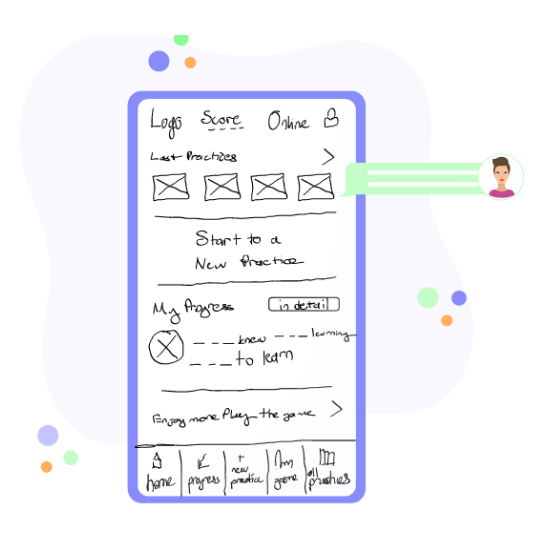 Logo Score Online
Last Practices
Start to a
New Practice
My Progress in detail
___ knew ___ learning
___ to learn
Enjoy more Play the game
home progress + new practice game all practices